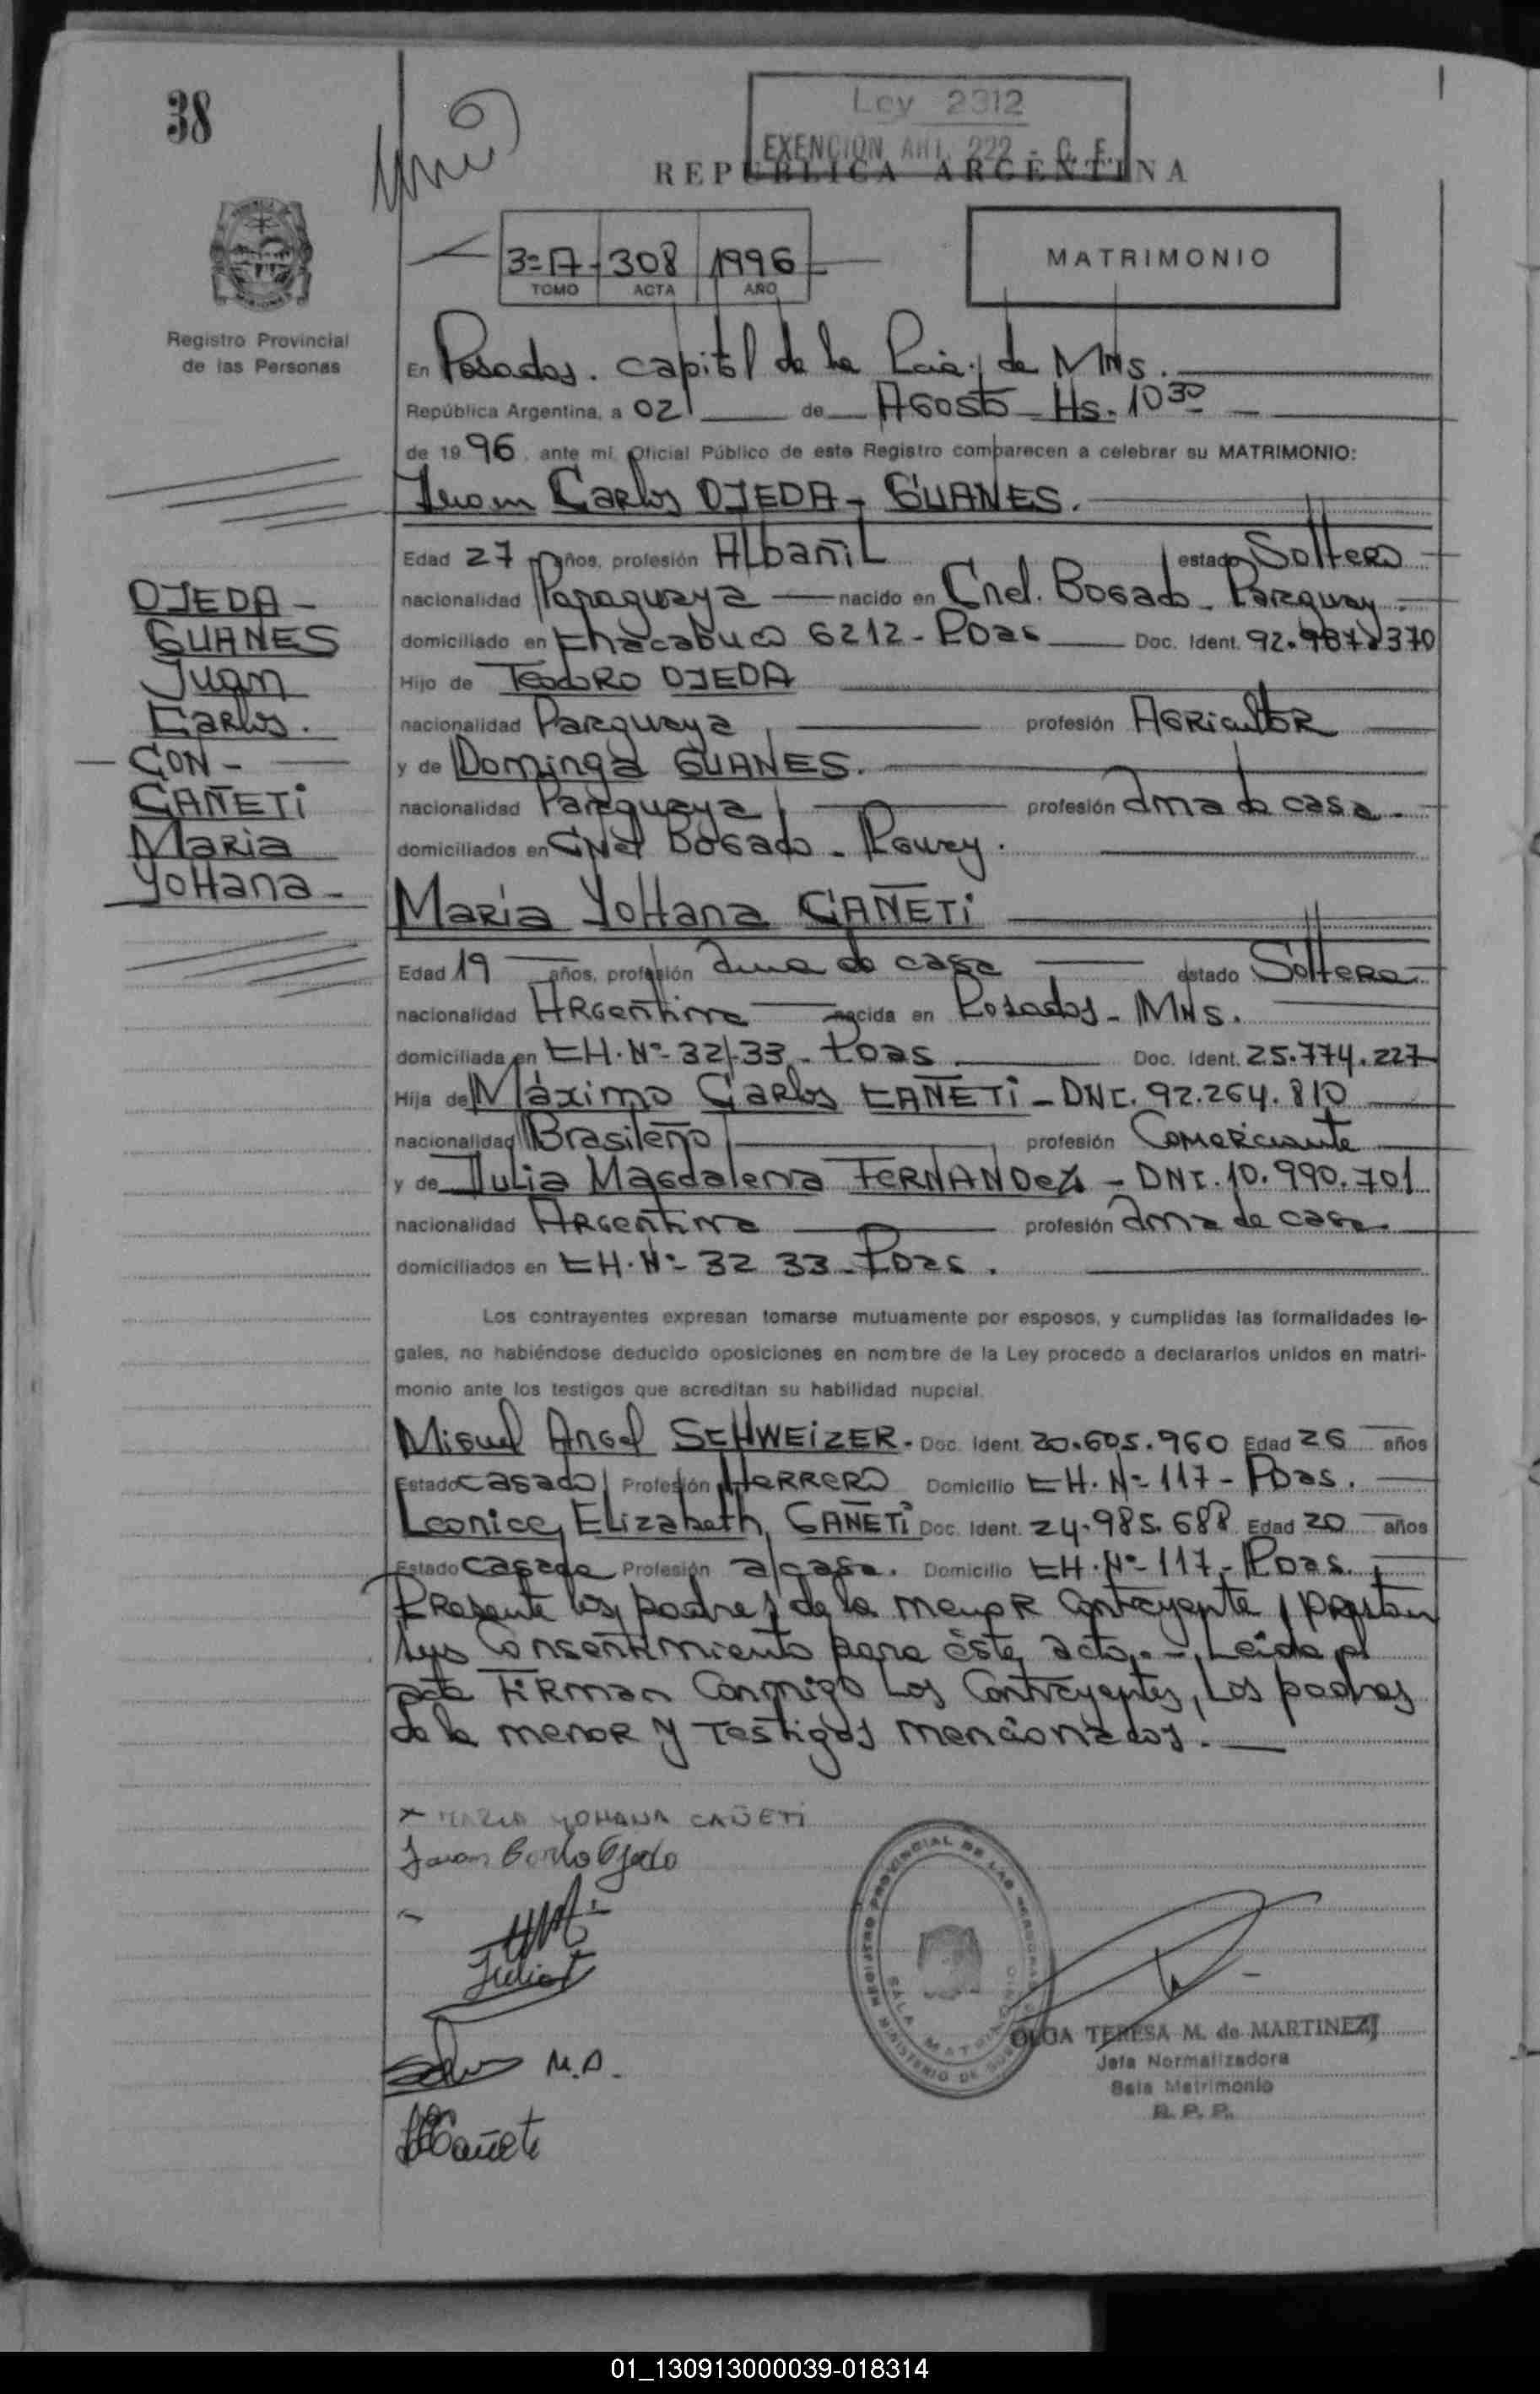 38
Ley 2312
EXENCION ART. 222 - C. F.
REPUBLICA ARGENTINA
3=A - 308 1996
TOMO ACTA AÑO
MATRIMONIO
Registro Provincial
de las Personas
En Posadas. Capital de la Pcia. de MNS.
República Argentina, a 02 de AGOSTO - Hs. 10 30
de 19 96, ante mí, Oficial Público de este Registro comparecen a celebrar su MATRIMONIO:
Juan Carlos OJEDA - GUANES.
Edad 27 años, profesión Albañil estado Soltero
nacionalidad Paraguaya nacido en Cnel. Bogado - Paraguay.
domiciliado en Chacabuco 6212 - Pdas Doc. Ident. 92.987.370
Hijo de Teodoro OJEDA
nacionalidad Paraguaya profesión Agricultor
y de Dominga GUANES.
nacionalidad Paraguaya profesión ama de casa.
domiciliados en Cnel Bogado -
OJEDA -
GUANES
Juan
Carlos.
CON -
CAÑETI
Maria
YoHana -
Maria YoHana CAÑETi
Edad 19 años, profesión ama de casa estado Soltera
nacionalidad Argentina nacida en Posadas - MNS.
domiciliada en CH. Nº 32/33 - Pdas Doc. Ident. 25.774.227
Hija de Máximo Carlos CAÑETi - DNI. 92.264.810
nacionalidad Brasileño profesión Comerciante
y de Julia Magdalena FERNANDEZ - DNI. 10.990.701
nacionalidad Argentina profesión ama de casa.
domiciliados en CH. Nº 32 33 - Pdas.
Los contrayentes expresan tomarse mutuamente por esposos, y cumplidas las formalidades le-
gales, no habiéndose deducido oposiciones en nombre de la Ley procedo a declararlos unidos en matri-
monio ante los testigos que acreditan su habilidad nupcial.
Miguel Angel SCHWEIZER. Doc. Ident. 20.605.960 Edad 26 años
Estado casado Profesión Herrero Domicilio CH. Nº 117 - Pdas.
Leonice Elizabeth CAÑETi Doc. Ident. 24.985.688 Edad 20 años
Estado casada Profesión a/casa. Domicilio CH. Nº 117 - Pdas.
Presente los padres de la menor contrayente, prestan
sus consentimiento para éste acto. - Leída el
acta firman conmigo los contrayentes, los padres
de la menor y testigos mencionados.
x MARIA YOHANA CAÑETI
Juan Carlo Ojeda
Julia F
M.A.
Cañeti
REGISTRO PROVINCIAL DE LAS PERSONAS
SALA MATRIMONIO
MINISTERIO DE GOBIERNO
OLGA TERESA M. de MARTINEZ
Jefa Normalizadora
Sala Matrimonio
R. P. P.
01_130913000039-018314